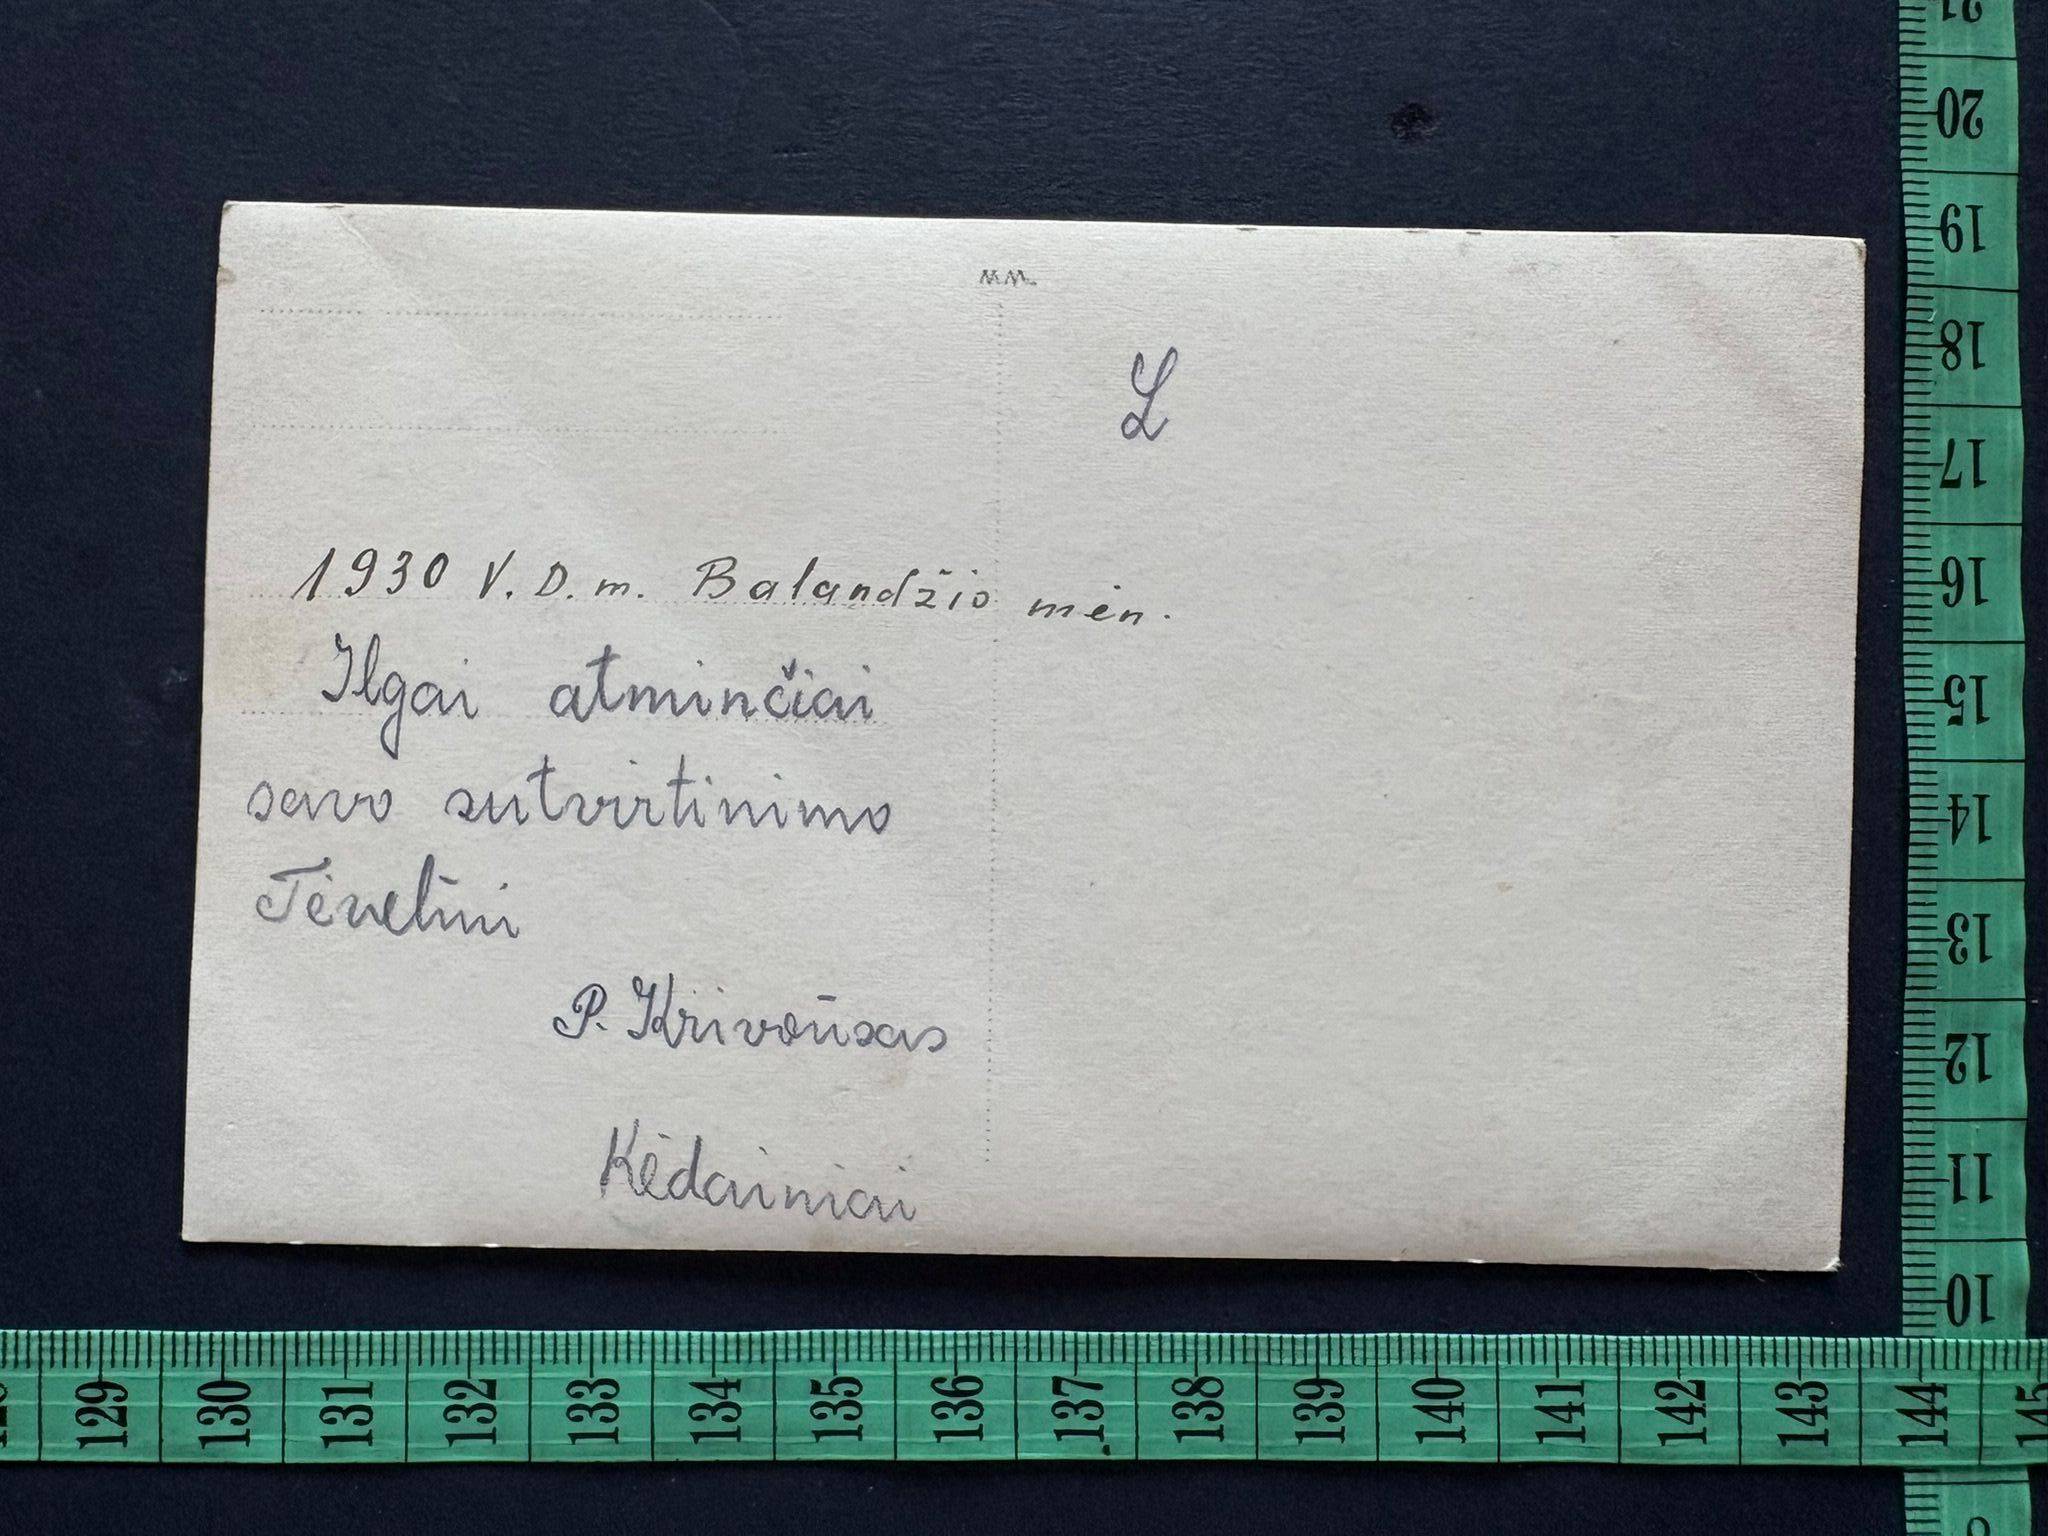 MM.
L
1930 V. D. m. Balandžio mėn.
Ilgai atminčiai
savo sutvirtinimo
Tėveliui
P. Krivoūsas
Kėdainiai
21
20
19
18
17
16
15
14
13
12
11
10
129 130 131 132 133 134 135 136 137 138 139 140 141 142 143 144 145